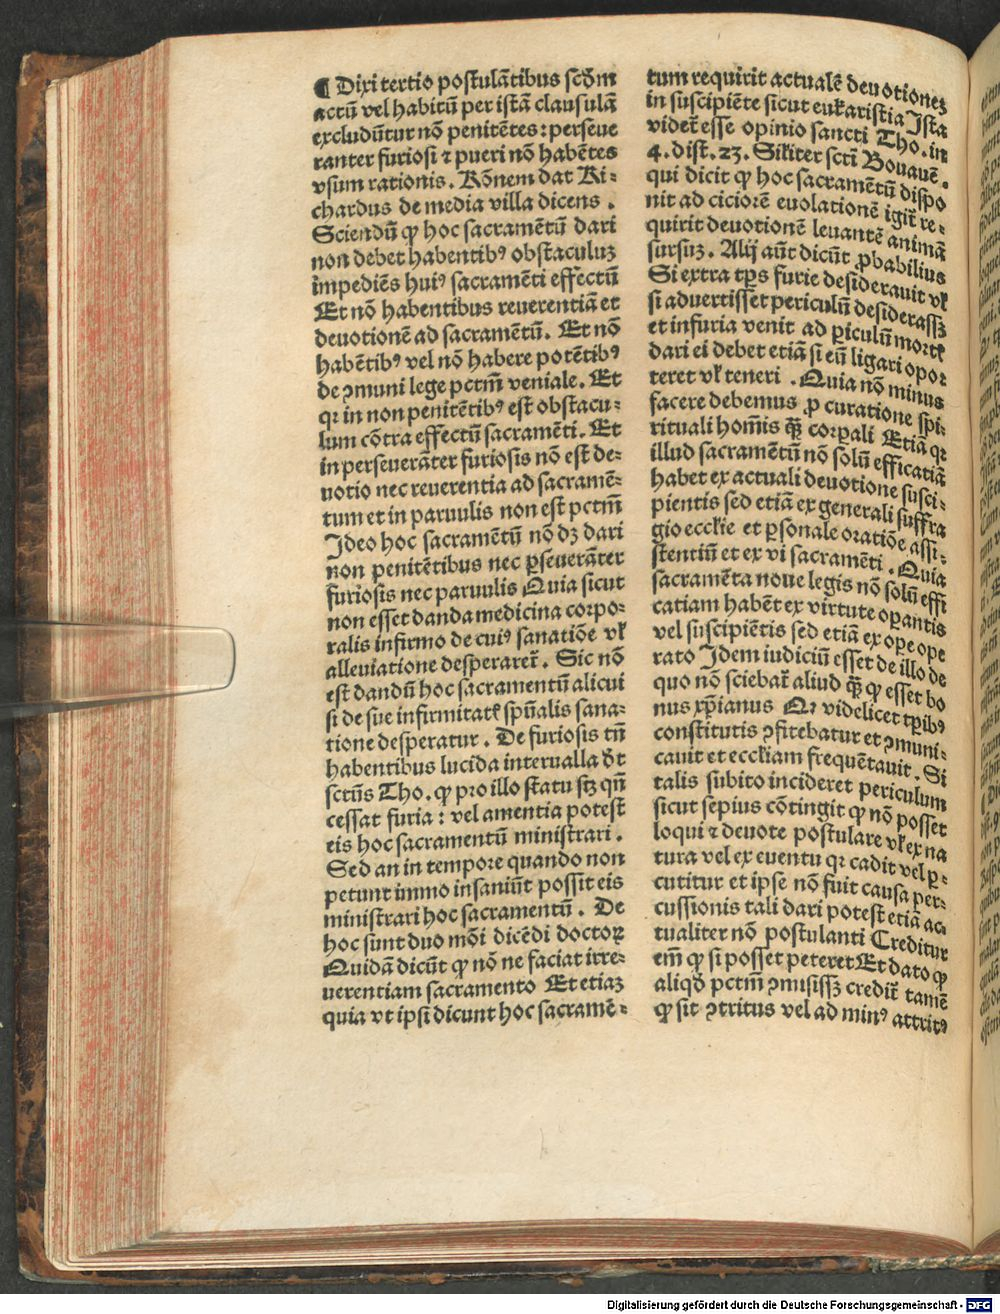 ¶ Dixi tertio postulātibus scd̄m
actū vel habitū per istā clausulā
excludūtur nō penitētes: perseue
ranter furiosi ⁊ pueri nō habētes
vsum rationis. Rōnem dat Ri-
chardus de media villa dicens.
Sciendū ꝙ hoc sacramētū dari
non debet habentibꝰ obstaculuꝫ
impediēs huiꝰ sacramēti effectū
Et nō habentibus reuerentiā et
deuotionē ad sacramētū. Et nō
habētibꝰ vel nō habere potētibꝰ
de ꝯmuni lege pctm̄ veniale. Et
qꝛ in non penitētibꝰ est obstacu-
lum cōtra effectū sacramēti. Et
in perseuerāter furiosis nō est de-
uotio nec reuerentia ad sacramē-
tum et in paruulis non est pctm̄
Ideo hoc sacramētū nō dꝫ dari
non penitētibus nec ꝑseuerāter
furiosis nec paruulis Quia sicut
non esset danda medicina corpo-
ralis infirmo de cuiꝰ sanatiōe vł
alleuiatione desperaret̄. Sic nō
est dandū hoc sacramentū alicui
si de sue infirmitatꝭ spūalis sana-
tione desperatur. De furiosis tn̄
habentibus lucida interualla dt̄
sctūs Tho. ꝙ pro illo statu sꝫ qn̄
cessat furia: vel amentia potest
eis hoc sacramentū ministrari.
Sed an in tempore quando non
petunt immo insaniūt possit eis
ministrari hoc sacramentū. De
hoc sunt duo mōi dicēdi doctoꝝ
Quidā dicūt ꝙ nō ne faciat irre-
uerentiam sacramento Et etiaꝫ
quia vt ipsi dicunt hoc sacramē-
tum requirit actualē deuotioneꝫ
in suscipiēte sicut eukaristia Ista
videt̄ esse opinio sancti Tho. in
4. dist. 23. Silıter scti Bonauē.
qui dicit ꝙ hoc sacramētū dispo
nit ad citiorē euolationē igit̄ re-
quirit deuotionē leuantē animā
sursuꝫ. Alij aūt dicūt ꝓbabilius
Si extra tp̄s furie desiderauit vł
si aduertisset periculū desiderassꝫ
et in furia venit ad ꝑiculū mortꝭ
dari ei debet etiā si eū ligari opoꝛ
teret vł teneri. Quia nō minus
facere debemus ꝓ curatione spi-
rituali hoīs qꝫ̄ corꝑali Etiā qꝛ
illud sacramētū nō solū efficatiā
habet ex actuali deuotione susci-
pientis sed etiā ex generali suffra
gio eccłie et ꝑsonale oratiōe assi-
stentiū et ex vi sacramēti. Quia
sacramēta noue legis nō solū effi
catiam habēt ex virtute oꝑantis
vel suscipiētis sed etiā ex oꝑe oꝑe
rato Idem iudiciū esset de illo de
quo nō sciebat̄ aliud qꝫ̄ ꝙ esset bo
nus xp̄ianus Qꝛ videlicet tp̄ibꝰ
constitutis ꝯfitebatur et ꝯmuni-
cauit et eccłiam frequētauit. Si
talis subito incideret periculum
sicut sepius cōtingit ꝙ nō posset
loqui ⁊ deuote postulare vł ex na
tura vel ex euentu qꝛ cadit vel ꝑ-
cutitur et ipse nō fuit causa per-
cussionis tali dari potest etiā ac-
tualiter nō postulanti Creditur
em̄ ꝙ si posset peteret Et dato ꝙ
aliqd̄ pctm̄ ꝯmisissꝫ credit̄ tamē
ꝙ sit ꝯtritus vel ad minꝰ attritꝰ
Digitalisierung gefördert durch die Deutsche Forschungsgemeinschaft - DFG